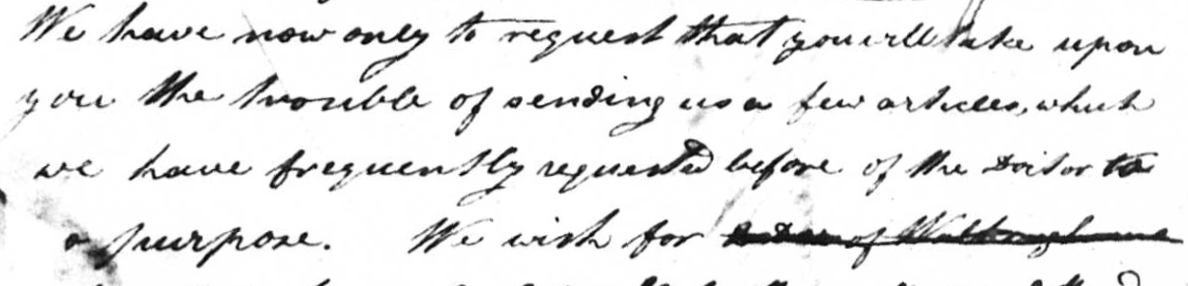 We have now only to request that you will take upon
you the trouble of sending us a few articles, which
we have frequently requested before of the Doctor to
a purpose. We wish for